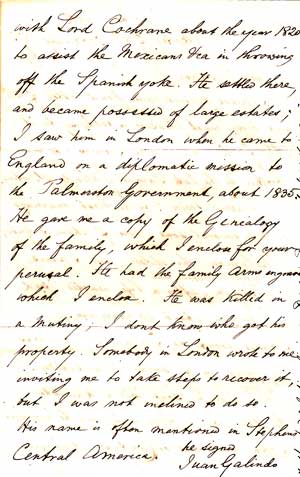 with Lord Cochrane about the year 1820
to assist the Mexicans &ca in throwing
off the Spanish yoke. He settled there,
and became possessed of large estates;
I saw him in London when he came to
England on a diplomatic mission to
the Palmerston Government, about 1835.
He gave me a copy of the Genealogy
of the family, which I enclose for your
perusal. He had the family Arms engraven
which I enclose. He was killed in
a Mutiny, I dont know who got his
property. Somebody in London wrote to me
inviting me to take steps to recover it,
but I was not inclined to do so.
His name is often mentioned in Stephens'
Central America. he signed
Juan Galindo